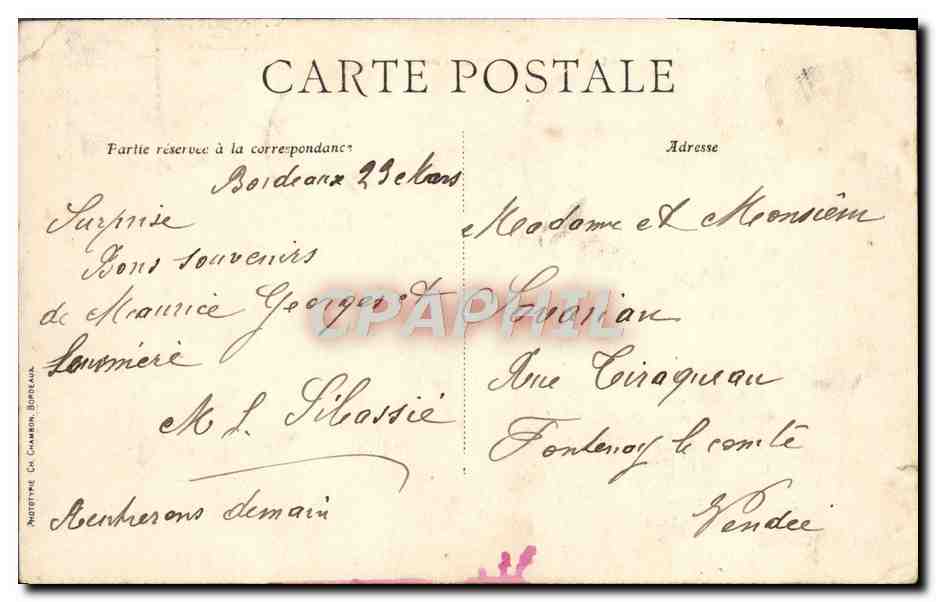 CARTE POSTALE
Partie réservée à la correspondance
Bordeaux 23 Mars
Surprise
Bons souvenirs
de Maurice Georges et
M L.
Rentrerons demain
Adresse
Madame et Monsieur
Rue Tiraqueau
Fontenay le comte
Vendée
PHOTOTYPIE CH. CHAMBON, BORDEAUX
CPAPHIL